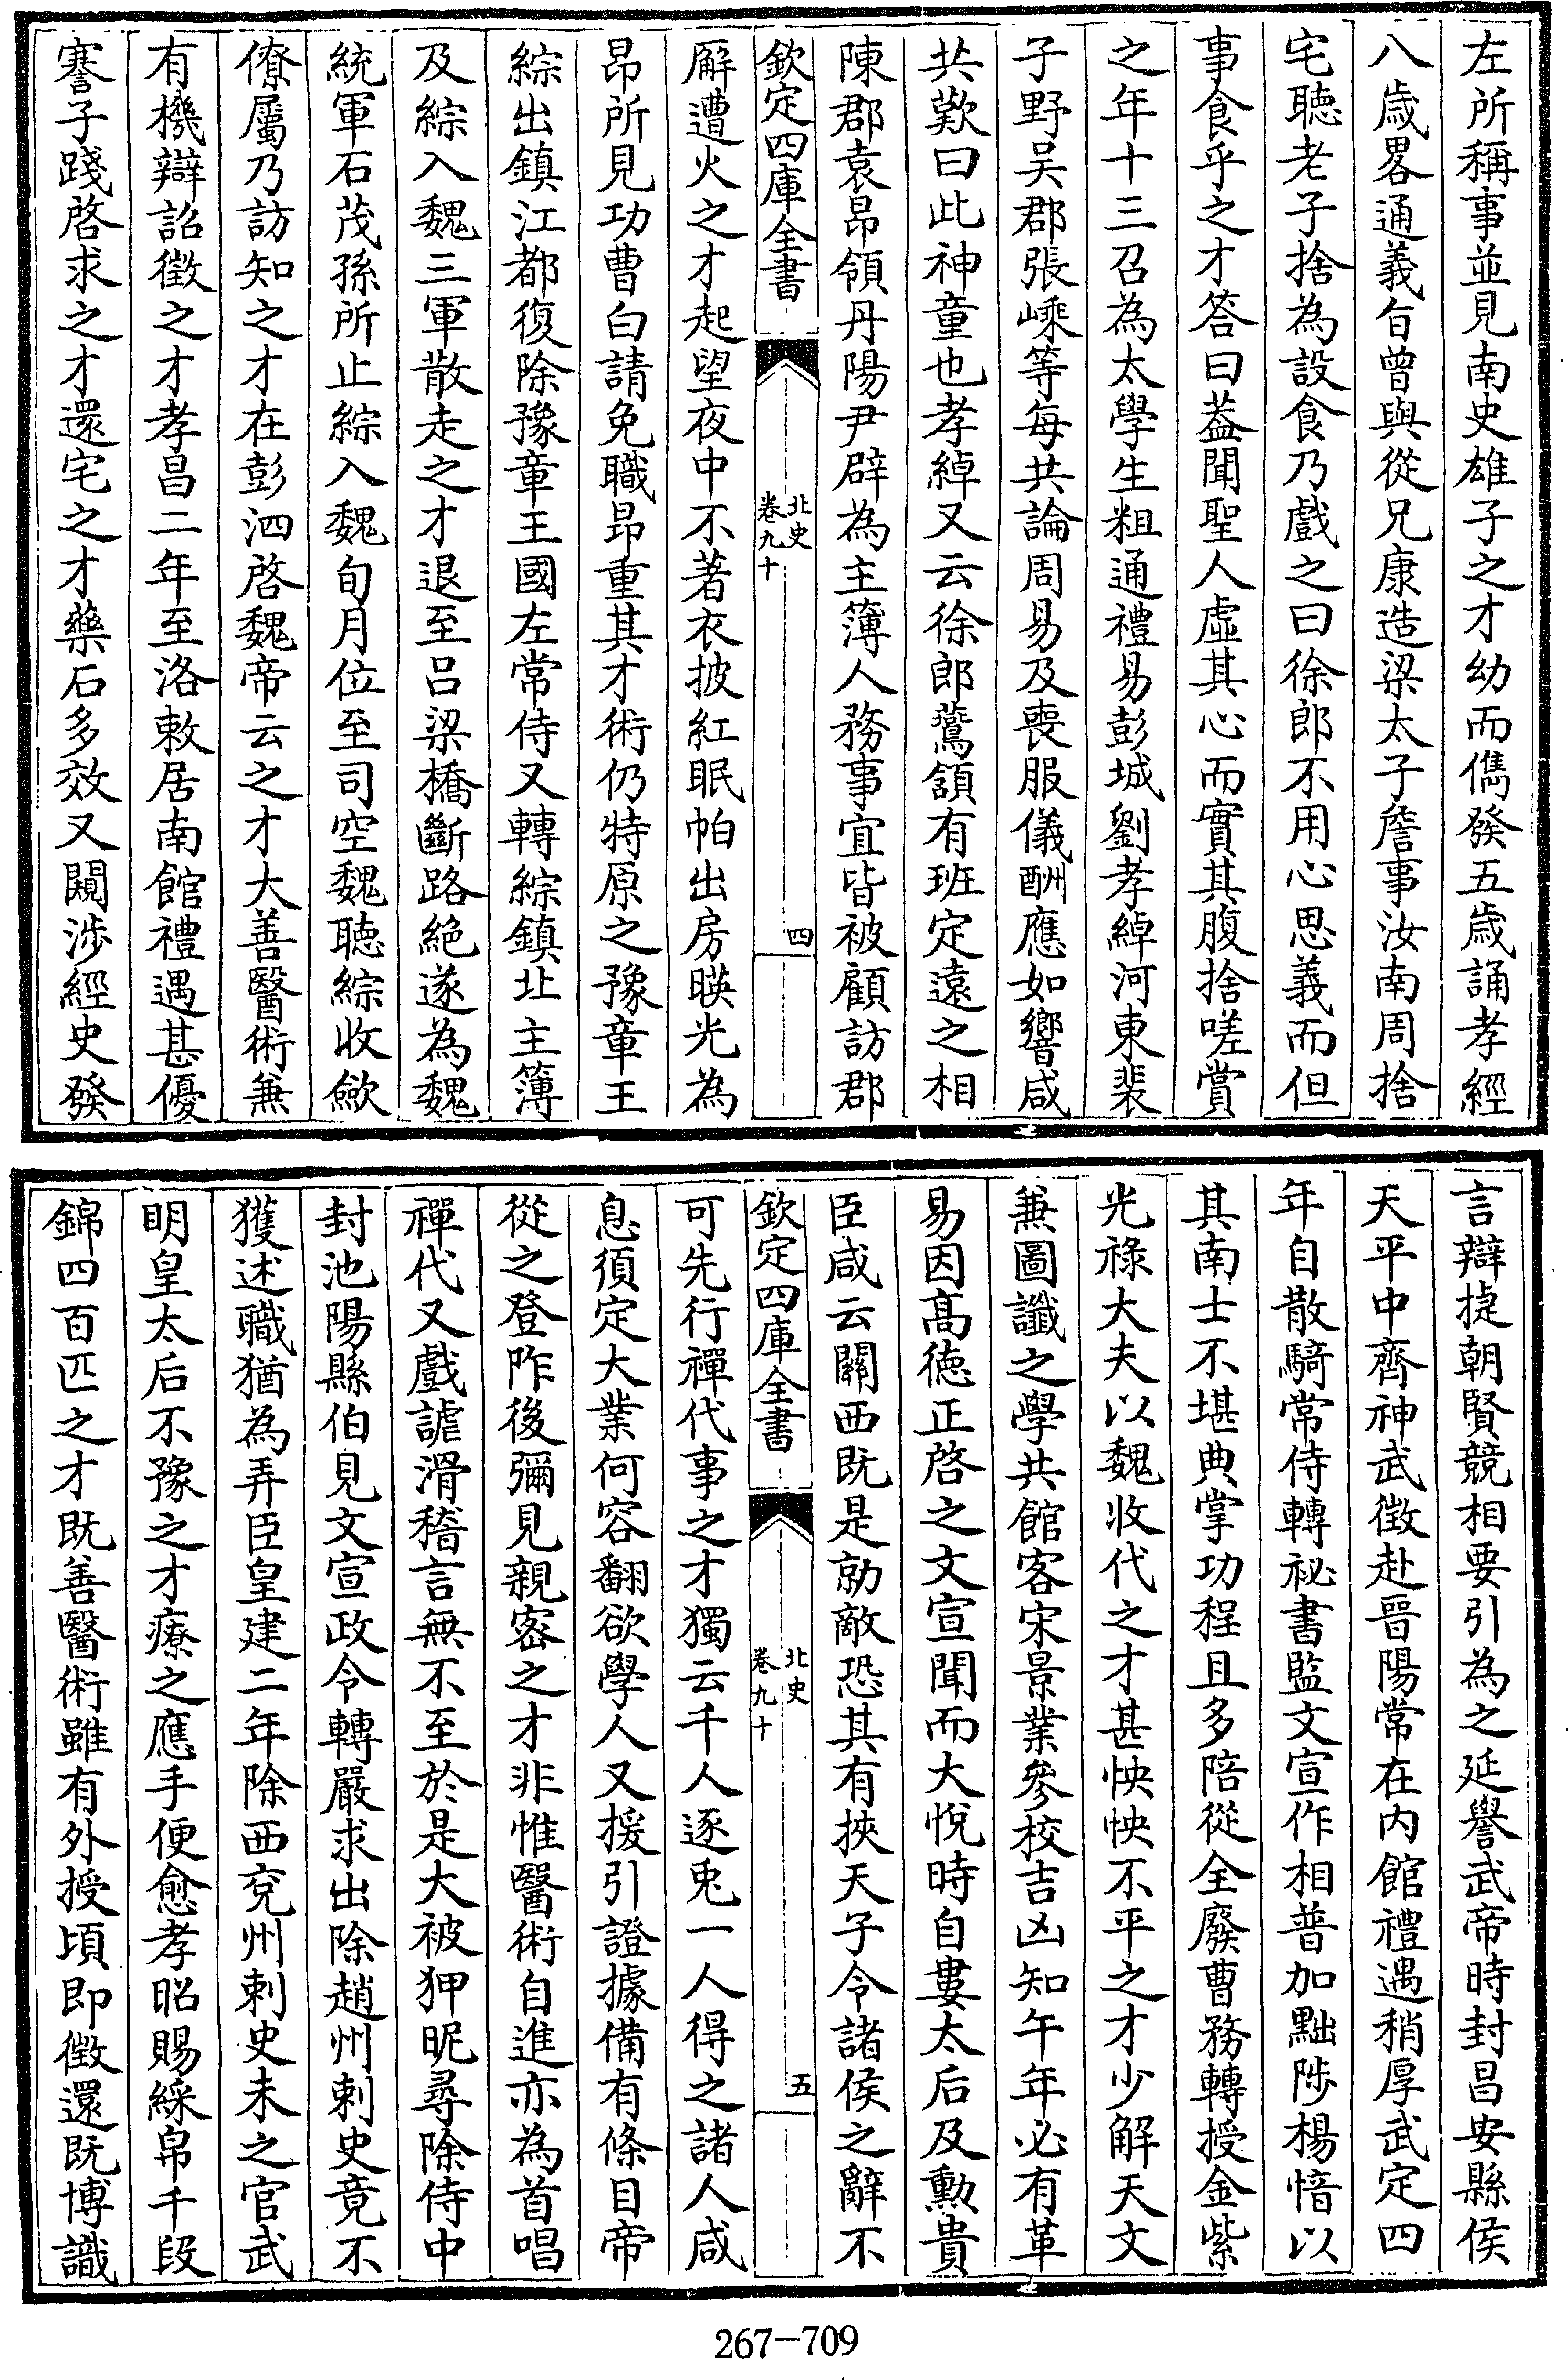 左所稱事並見南史雄子之才幼而儁發五歳誦孝經
八歳畧通義㫖曾與從兄康造梁太子詹事汝南周捨
宅聽老子捨為設食乃戲之曰徐郎不用心思義而但
事食乎之才答曰葢聞聖人虛其心而實其腹捨嗟賞
之年十三召為太學生粗通禮易彭城劉孝綽河東裴
子野吴郡張嵊等每共論周易及喪服儀酬應如響咸
共歎曰此神童也孝綽又云徐郎鷰頷有班定遠之相
陳郡袁昻領丹陽尹辟為主簿人務事宜皆被顧訪郡
欽定四庫全書
北史
卷九十
四
廨遭火之才起望夜中不著衣披紅眠帕出房暎光為
昻所見功曹白請免職昻重其才術仍特原之豫章王
綜出鎮江都復除豫章王國左常侍又轉綜鎮北主簿
及綜入魏三軍散走之才退至吕梁橋斷路絶遂為魏
統軍石茂孫所止綜入魏旬月位至司空魏聽綜收歛
僚屬乃訪知之才在彭泗啓魏帝云之才大善醫術兼
有機辯詔徵之才孝昌二年至洛敕居南館禮遇甚優
謇子踐啓求之才還宅之才藥石多效又闚渉經史發
言辯捷朝賢競相要引為之延譽武帝時封昌安縣侯
天平中齊神武徵赴晉陽常在内館禮遇稍厚武定四
年自散騎常侍轉祕書監文宣作相普加黜陟楊愔以
其南士不堪典掌功程且多陪從全廢曹務轉授金紫
光祿大夫以魏收代之才甚怏怏不平之才少解天文
兼圖讖之學共館客宋景業參校吉凶知午年必有革
易因髙徳正啓之文宣聞而大悅時自婁太后及勲貴
臣咸云關西既是勍敵恐其有挾天子令諸侯之辭不
欽定四庫全書
北史
卷九十
五
可先行禪代事之才獨云千人逐兎一人得之諸人咸
息須定大業何容翻欲學人又援引證據備有條目帝
從之登阼後彌見親密之才非惟醫術自進亦為首唱
禪代又戲謔滑稽言無不至於是大被狎昵尋除侍中
封池陽縣伯見文宣政令轉嚴求出除趙州刺史竟不
獲述職猶為弄臣皇建二年除西兖州刺史未之官武
明皇太后不豫之才療之應手便愈孝昭賜綵帛千段
錦四百匹之才既善醫術雖有外授頃即徴還既博識
267-709